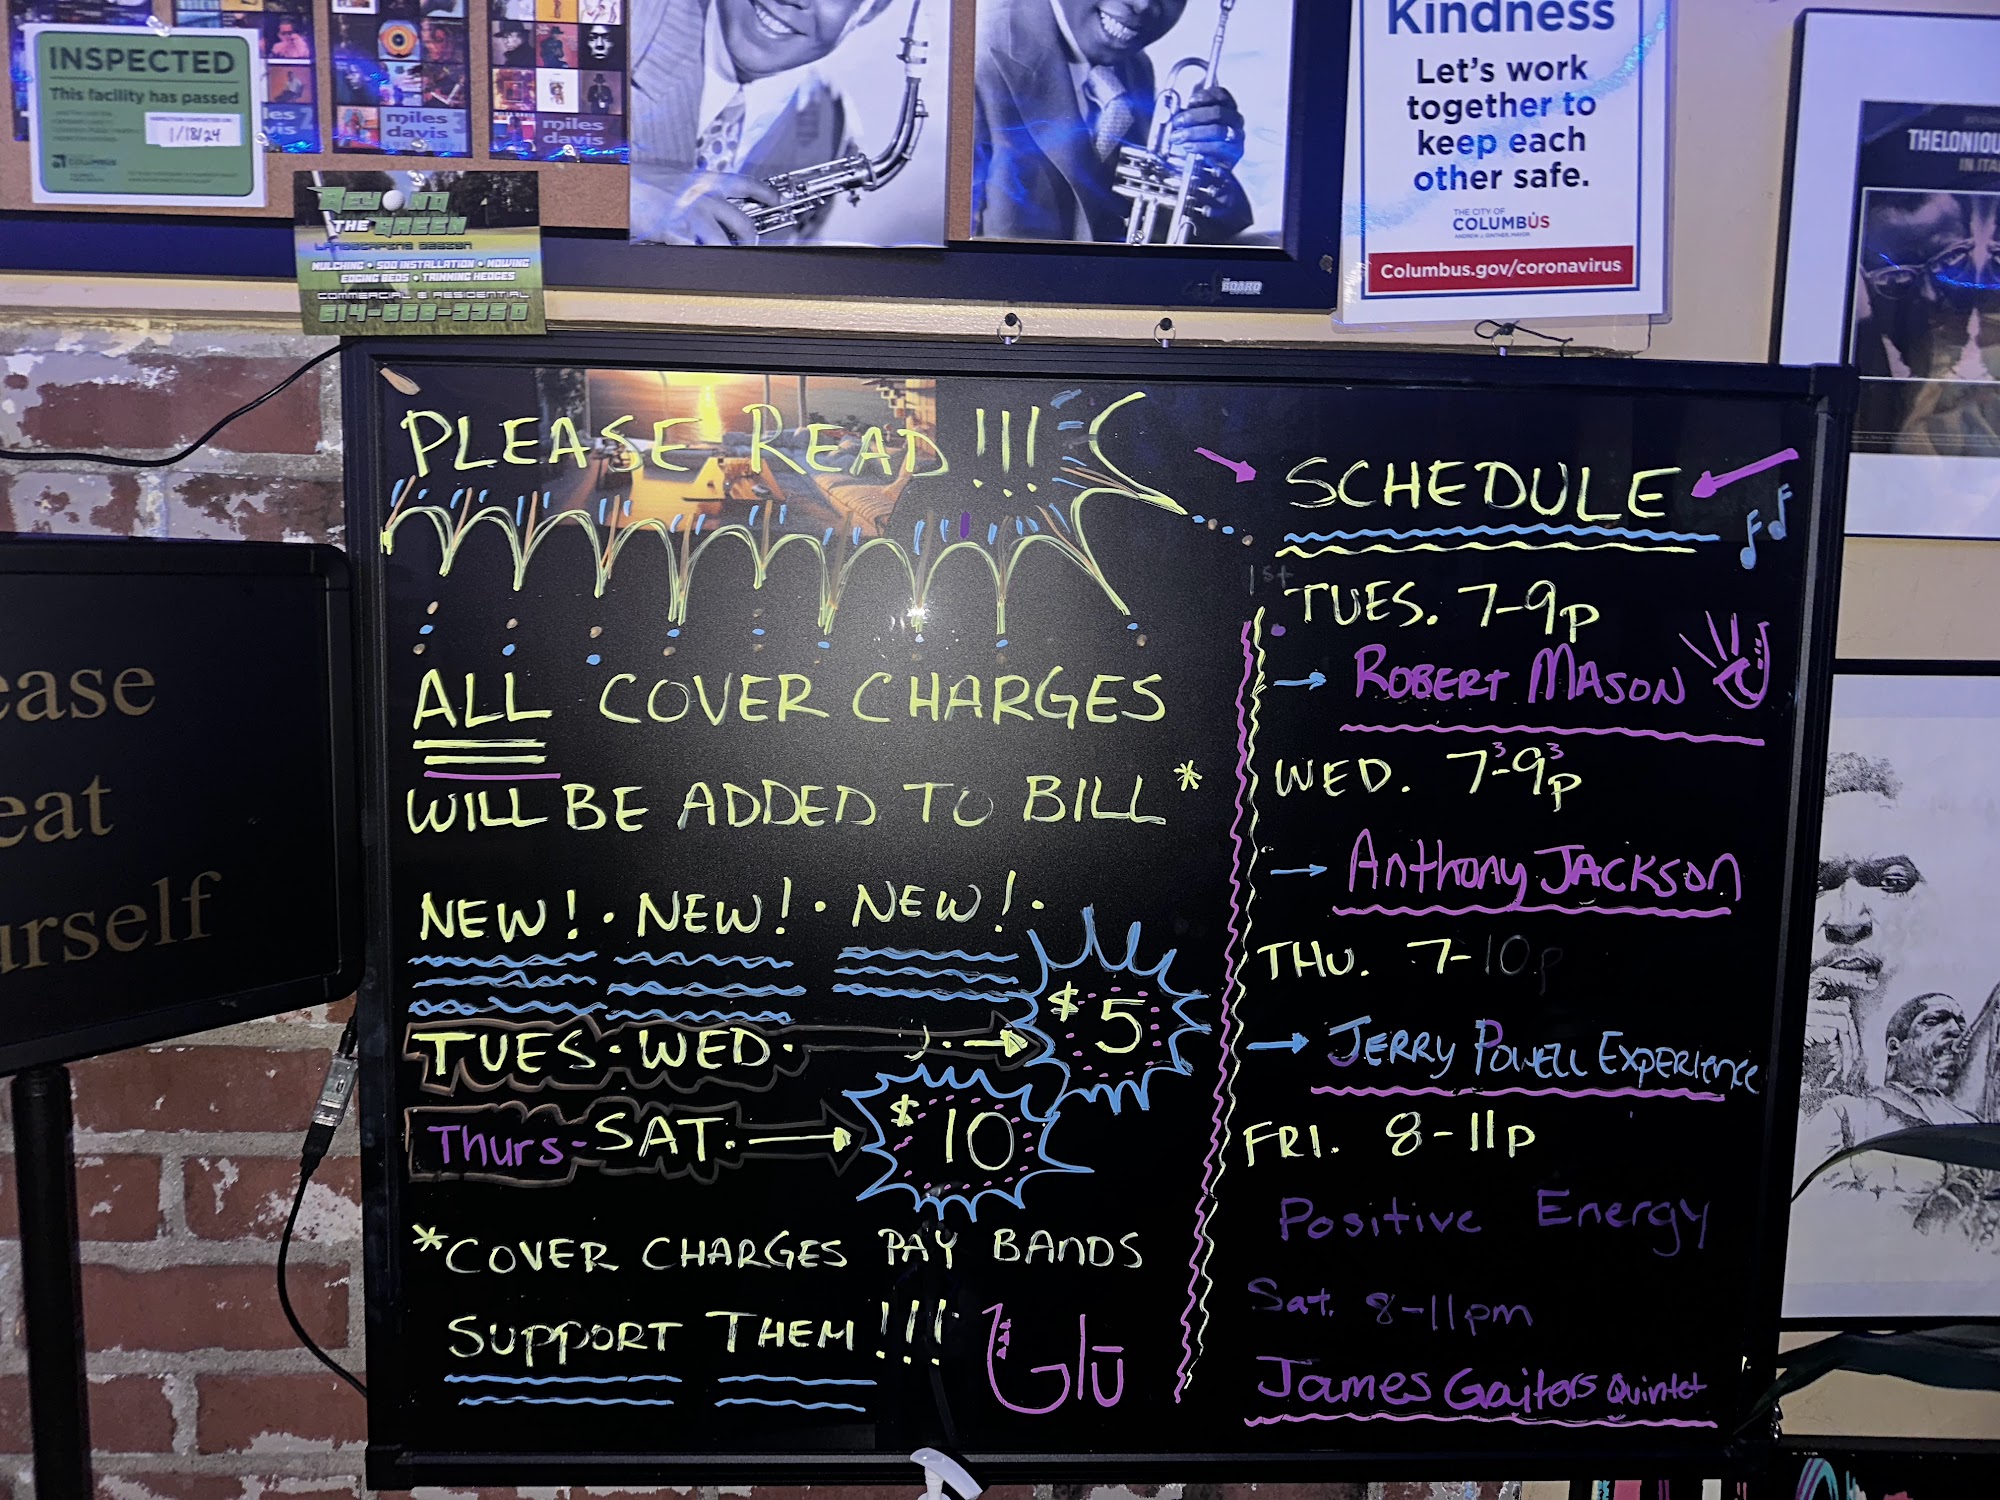 INSPECTED
This facility has passed
1/18/24
COLUMBUS
miles
davis
miles
davis
BEYOND
THE GREEN
MULCHING • SOD INSTALLATION • MOWING
EDGING BEDS • TRIMMING HEDGES
COMMERCIAL & RESIDENTIAL
614-668-3350
Kindness
Let's work
together to
keep each
other safe.
THE CITY OF
COLUMBUS
ANDREW J. GINTHER, MAYOR
Columbus.gov/coronavirus
BOARD
THELONIOU
IN ITA
ease
eat
urself
PLEASE READ!!!
ALL COVER CHARGES
WILL BE ADDED TO BILL*
NEW! · NEW! · NEW! ·
TUES · WED · $5
Thurs - SAT · $10
*COVER CHARGES PAY BANDS
SUPPORT THEM!!!
Glū
SCHEDULE
1st
TUES. 7-9p
ROBERT MASON
WED. 7³-9³p
Anthony JACKSON
THU. 7-10p
JERRY POWELL EXPERIENCE
FRI. 8-11p
Positive Energy
Sat. 8-11pm
James Gaiters Quintet